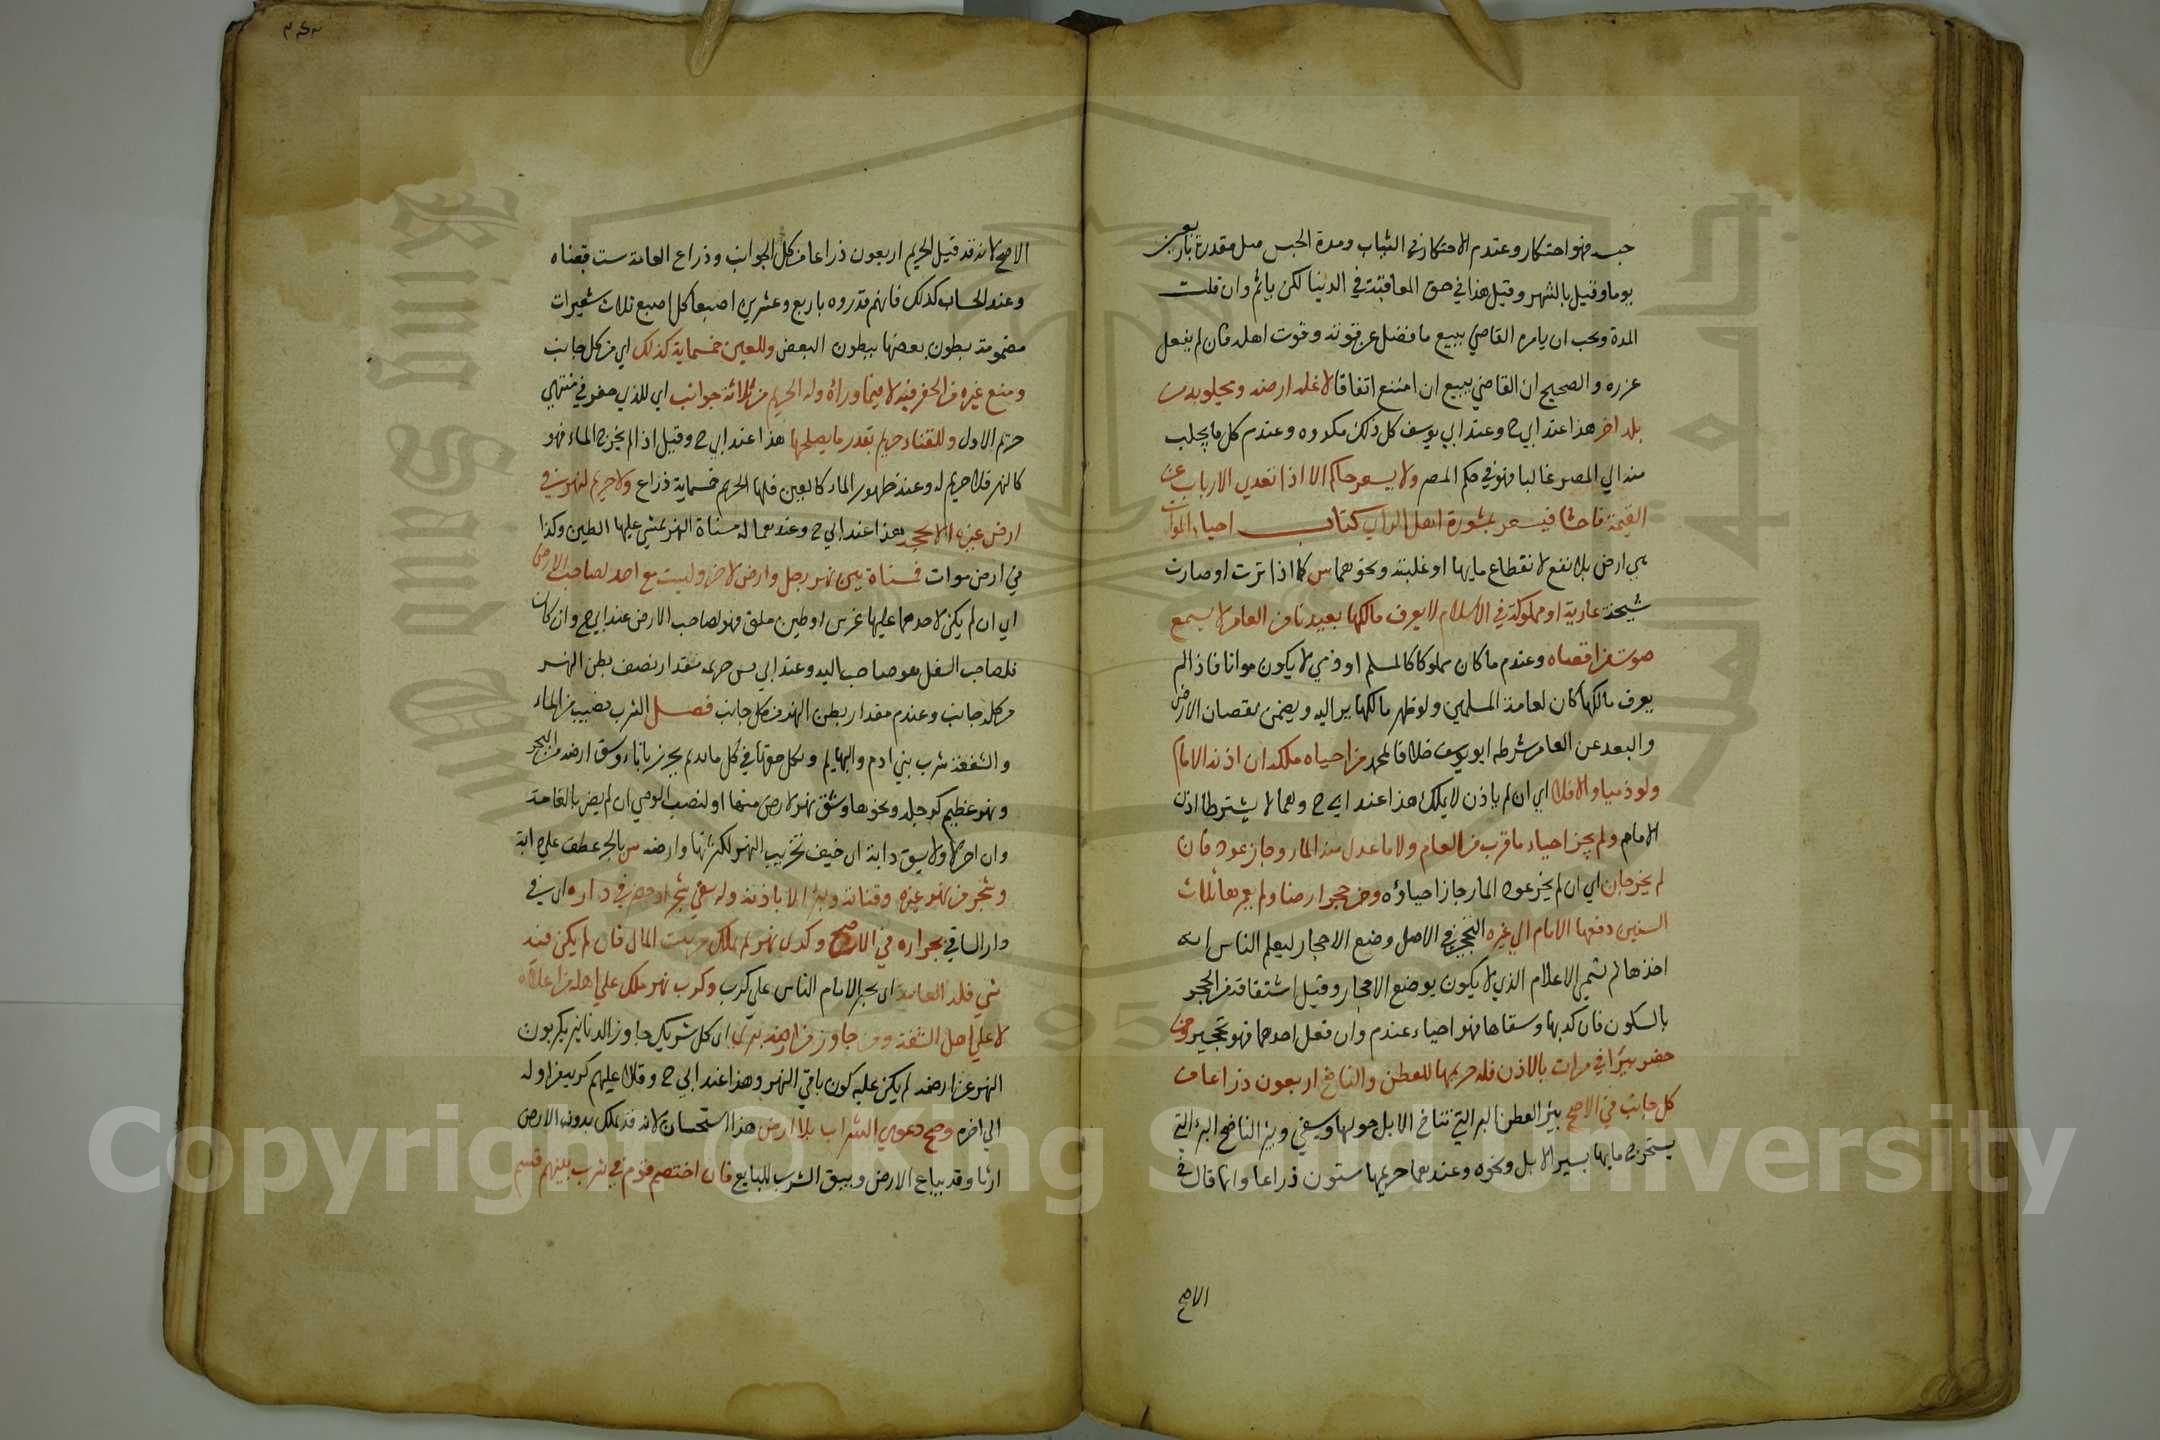 حبسه فهو احتكار وعندم الاحتكار في الثياب ومدة الحبس قيل مقدرة باربعين
يوما وقيل بالشهر وقيل هذا في حق المعاقبة في الدنيا لكن ياثم وان قلت
المدة ويجب ان يامره القاضي ببيع ما فضل عن قوته وقوت اهله فان لم يفعل
عزره والصحيح ان القاضي يبيع ان امتنع اتفاقا لا غلة ارضه ومجلوبه من
بلد اخر هذا عند ابي ح وعند ابي يوسف كل ذلك مكروه وعندم كل ما يجلب
منه الي المصر غالبا فهو في حكم المصر ولا يسعر حاكم الا اذا تعدي الارباب عن
القيمة فاحشا فيسعر بمشورة اهل الراي كتاب احياء الموات
هي ارض بلا نفع لانقطاع مايها او غلبته ونحوهما س كما اذا نزت او صارت
سبخة عادية او مملوكة في الاسلام لا يعرف مالكها بعيدة من العامر لا يسمع
صوت من اقصاه وعندم ما كان مملوكا كالمسلم او ذمي لا يكون مواتا فاذا لم
يعرف مالكها كان لعامة المسلمين ولو ظهر مالكها يرد اليه ويضمن نقصان الارض
والبعد عن العامر شرطه ابو يوسف خلافا لمحمد من احياه ملكه ان اذن الامام
ولو ذميا والا فلا اي ان لم ياذن لا يملك هذا عند ابي ح وهما لا يشترطا اذن
الامام ولم يجز احياء ما قرب من العامر ولا ما عدل عنه الماء وجاز عوده فان
لم يجز جاز اي ان لم يجز عوده الماء جاز احياؤه ومن حجر ارضا ولم يعمرها ثلاث
السنين دفعها الامام الي غيره التحجير في الاصل وضع الاحجار ليعلم الناس انه
اخذها ثم سمي الاعلام الذي لا يكون بوضع الاحجار وقيل اشتقاقه من الحجر
بالسكون فان كربها وسقاها فهو احياء عندم وان فعل احدهما فهو تحجير ومن
حفر بيرا في موات بالاذن فله حريمها للعطن والناضح اربعون ذراعا من
كل جانب في الاصح بير العطن البر التي تناخ الابل حولها ويسقي وبير الناضح البر التي
يستخرج مايها بسير الابل ونحوه وعندهما حريمها ستون ذراعا وانما قال في
الاصح
٣٤٣
الاصح لانه قد قيل الحريم اربعون ذراعا من كل الجوانب وذراع العامة ست قبضاه
وعند الحساب كذلك فانهم قدروه باربع وعشرين اصبعا كل اصبع ثلاث شعيرات
مضمومة بطون بعضها ببطون البعض وللعين خمسماية كذلك اي من كل جانب
ومنع غيره من الحفر فيه لا فيما وراه وله الحريم من ثلاثة جوانب اي للذي حفر في منتهي
حريم الاول وللقناة حريم بقدر ما يصلحها هذا عند ابي ح وقيل اذا لم يخرج الماء فهو
كالنهر فلا حريم له وعند ظهور الماء كالعين فلها الحريم خمسماية ذراع ولا حريم لنهر في
ارض غيره الا بحجة هذا عند ابي ح وعندهما له مسناة النهر يمشي عليها الطين وكذا
في ارض موات فمسناة بين نهر رجل وارض لاخر وليست مع احد لصاحب الارض
اي ان لم يكن لاحدهما عليها غرس او طين ملقي فهو لصاحب الارض عند ابي ح وان كان
فلصاحب الشغل هو صاحب اليد وعند ابي س حريمه مقدار نصف بطن النهر
من كل جانب وعندم مقدار بطن النهر من كل جانب فصل الشرب نصيب من الماء
والشفة شرب بني ادم والبهايم ولكل حقها في كل ماء لم يحرز باناء وسقي ارضه من البحر
ونهر عظيم كدجلة ونحوها وشق نهر لارض منها او لنصب الرحي ان لم يضر بالعامة
وان احرز لا ولا يسقي دابة ان خيف تخريب النهر لكثرتها وارضه س بالجر عطف علي دابة
وشجر من نهر غيره وقناته وبئر الا باذنه وله سقي شجر او خضر في داره اي في
دار الساقي بجراره في الاصح وكري نهر لم يملك من بيت المال فان لم يكن فيه
شي فله العامة اي يجبر الامام الناس علي كريه وكري نهر مملوك علي اهله من اعلاه
لا علي اهل الشفة ومن جاوز من ارضه بري اي كل شريك جاوز الذين يكربون
النهر عن ارضه لم يكن عليه كري باقي النهر وهذا عند ابي ح وقالا عليهم كريه من اوله
الي اخره وصح دعوي الشراب بلا ارض هذا استحسان لانه قد يملك بدون الارض
ارثا وقد يباع الارض ويبقي الشرب للبايع فان اختصم قوم في شرب بينهم قسم
Copyright © King Saud University
جامعة الملك سعود
King Saud University
1957